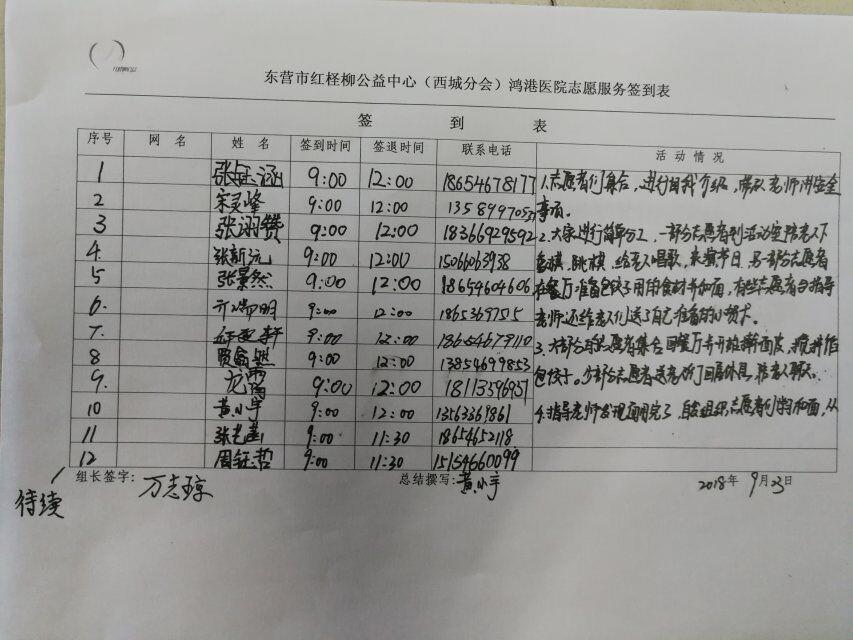 东营市红柽柳公益中心（西城分会）鸿港医院志愿服务签到表
签 到 表
序号 网 名 姓 名 签到时间 签退时间 联系电话 活 动 情 况
1 张钰涵 9:00 12:00 18654678177
2 宋灵峰 9:00 12:00 13589997053
3 张诩赞 9:00 12:00 18366929592
4. 张新沅 9:00 12:00 15066063938
5 张景然 9:00 12:00 18654604606
6. 亓瑞明 9:00 12:00 1865369
7. 9:00 12:00 18654677110
8 9:00 12:00 13854699853
9. 9:00 12:00 1811339
10 黄小宇 9:00 12:00 13563369861
11 张 9:00 11:30 18654652118
12 周钰哲 9:00 11:30 15154660099
1.志愿者们集合，进行自我介绍，带队老师讲安全
事项。
2.大家进行简单分工，一部分志愿者到活动室陪老人下
象棋、跳棋，给老人唱歌，表演节目，另一部分志愿者
在餐厅准备包饺子用的食材并和面，有些志愿者与指导
老师还给老人们送了自己准备的小贺卡。
3.大部分的志愿者集合回餐厅并开始擀面皮，
包饺子，少部分志愿者送老人们回屋休息，陪老人聊天。
4.指导老师发现面用完了，自发组织志愿者们学习和面，从
组长签字: 万志琼 总结撰写: 黄小宇 2018年 9月23日
待续